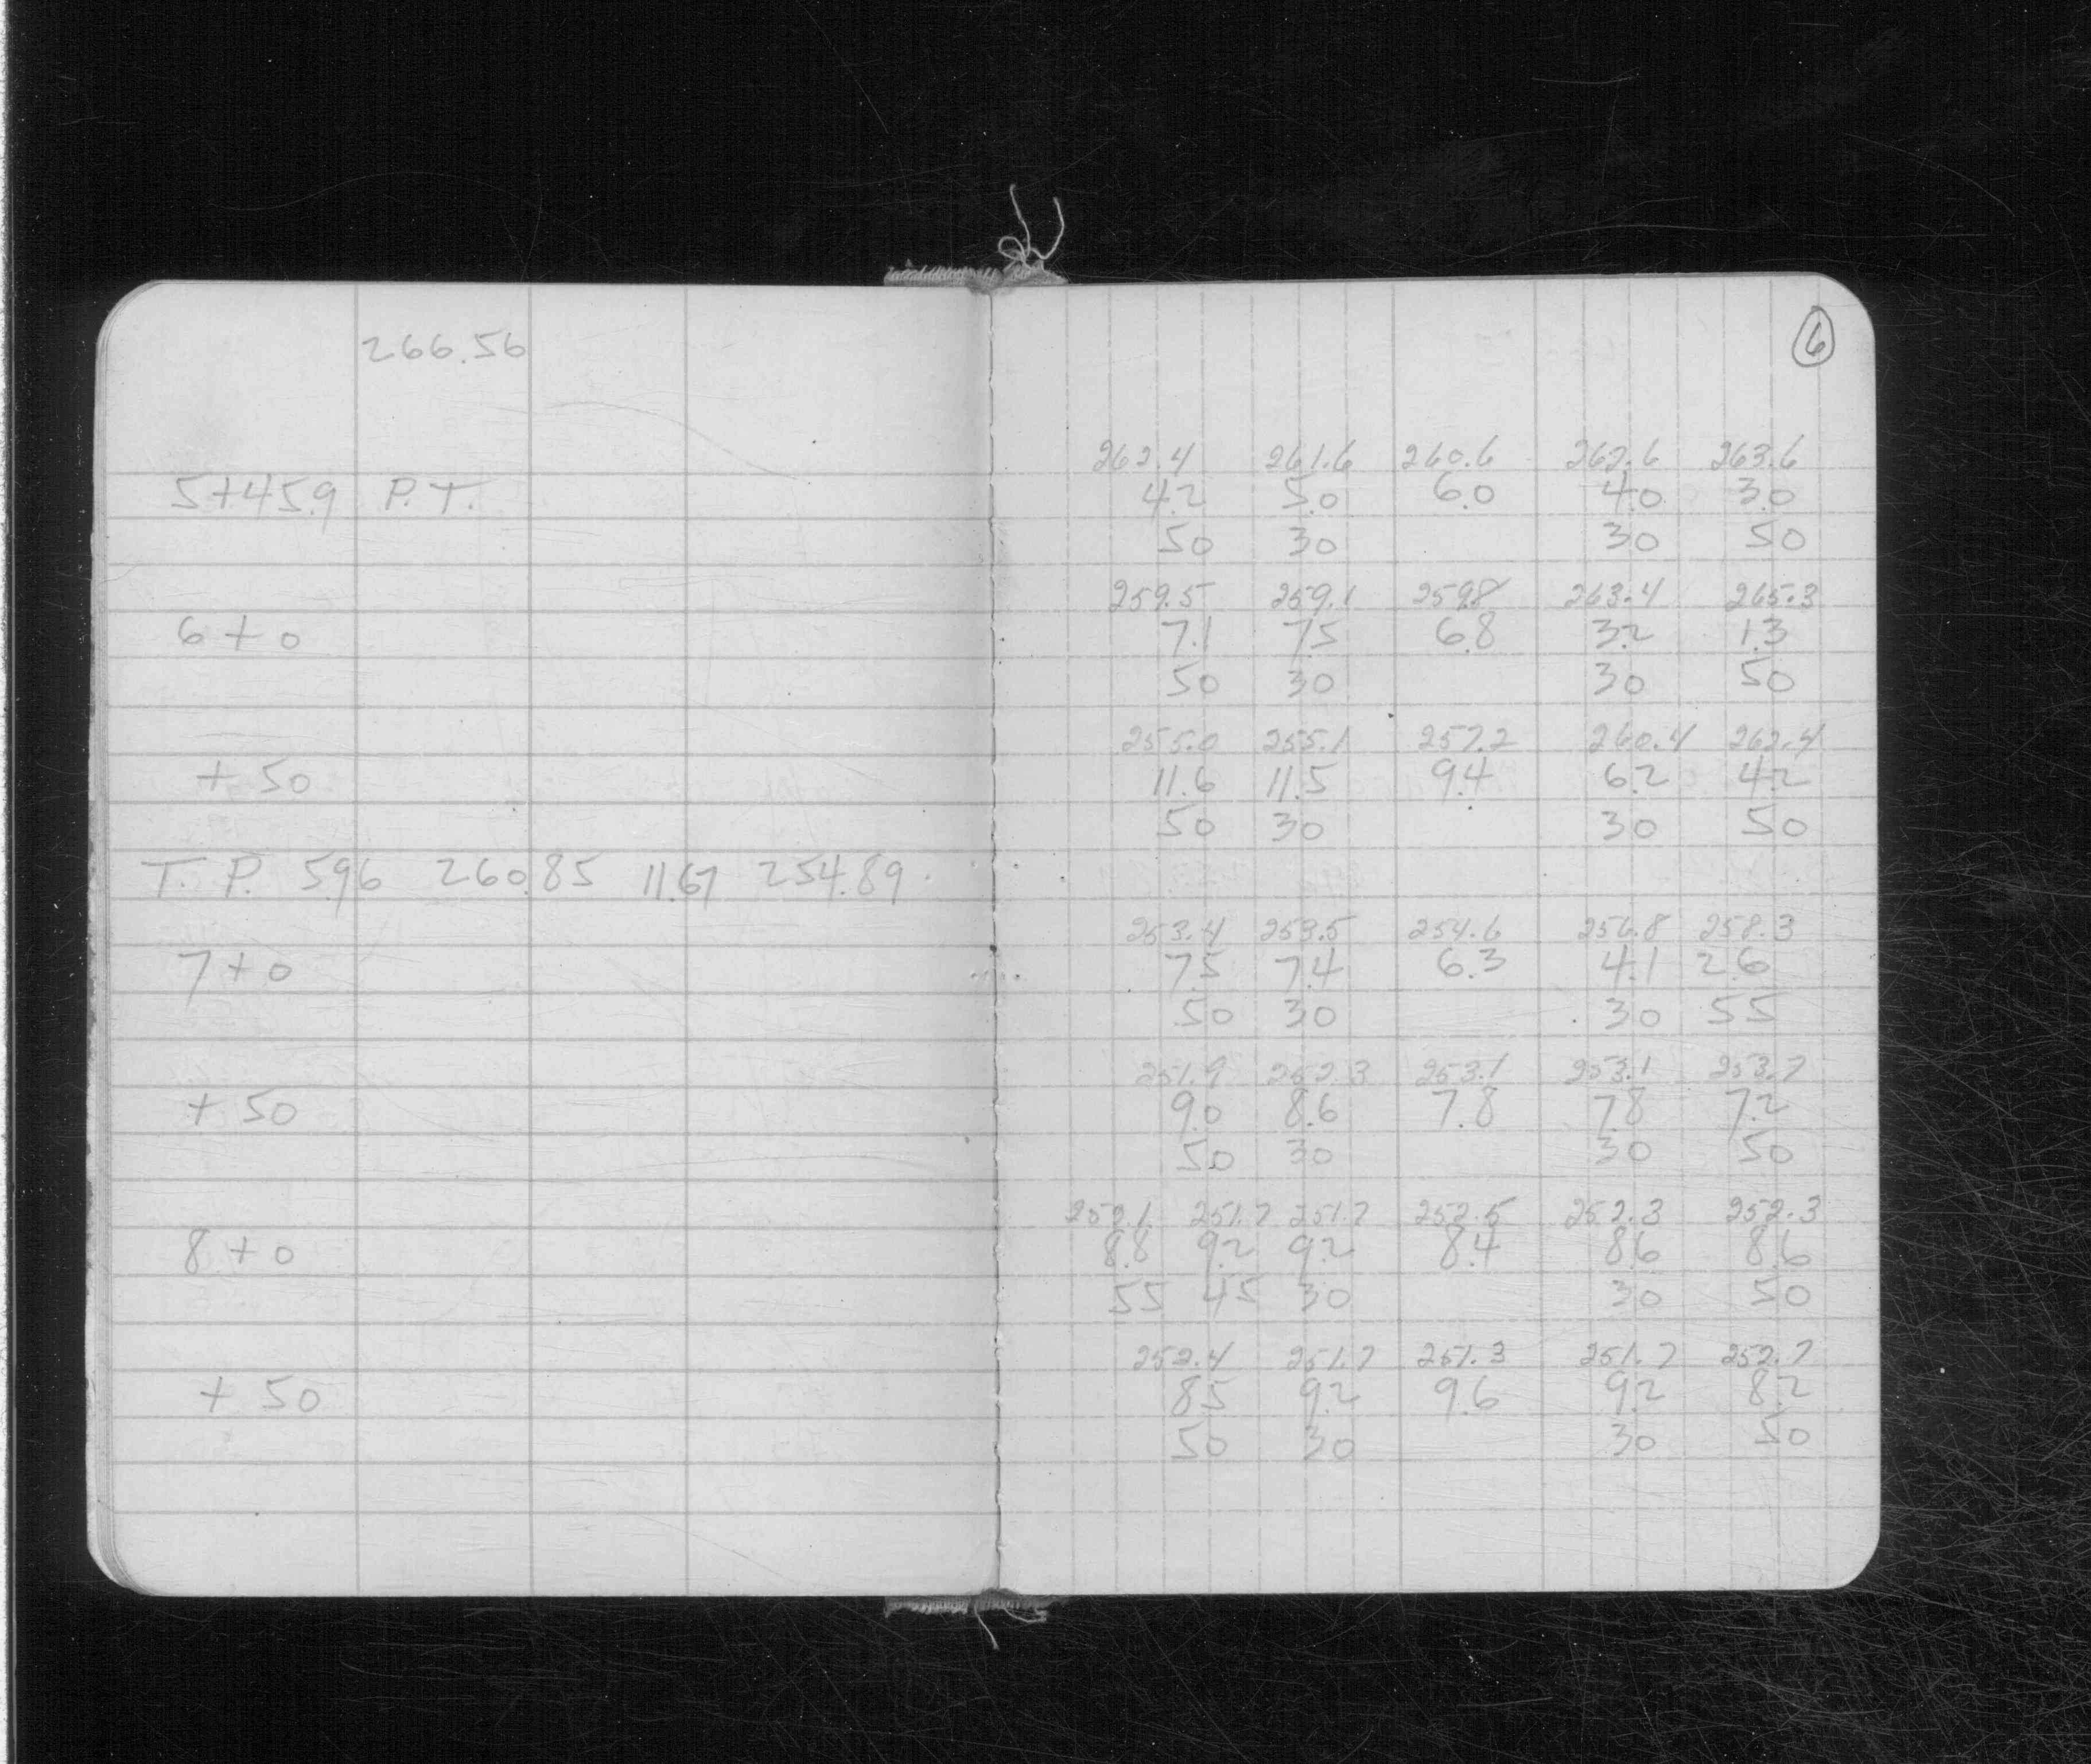 266.56
6
262.4 261.6 260.6 262.6 263.6
5+45.9 P.T. 4.2 5.0 6.0 4.0 3.0
50 30 30 50
259.5 259.1 259.8 263.4 265.3
6+0 7.1 7.5 6.8 3.2 1.3
50 30 30 50
255.0 255.1 257.2 260.4 262.4
+50 11.6 11.5 9.4 6.2 4.2
50 30 30 50
T. P. 5.96 260.85 11.67 254.89
253.4 253.5 254.6 256.8 258.3
7+0 7.5 7.4 6.3 4.1 2.6
50 30 30 55
251.9 252.3 253.1 253.1 253.7
+50 9.0 8.6 7.8 7.8 7.2
50 30 30 50
252.1 251.7 251.7 252.5 252.3 252.3
8+0 8.8 9.2 9.2 8.4 8.6 8.6
55 45 30 30 50
252.4 251.7 251.3 251.7 252.7
+50 8.5 9.2 9.6 9.2 8.2
50 30 30 50